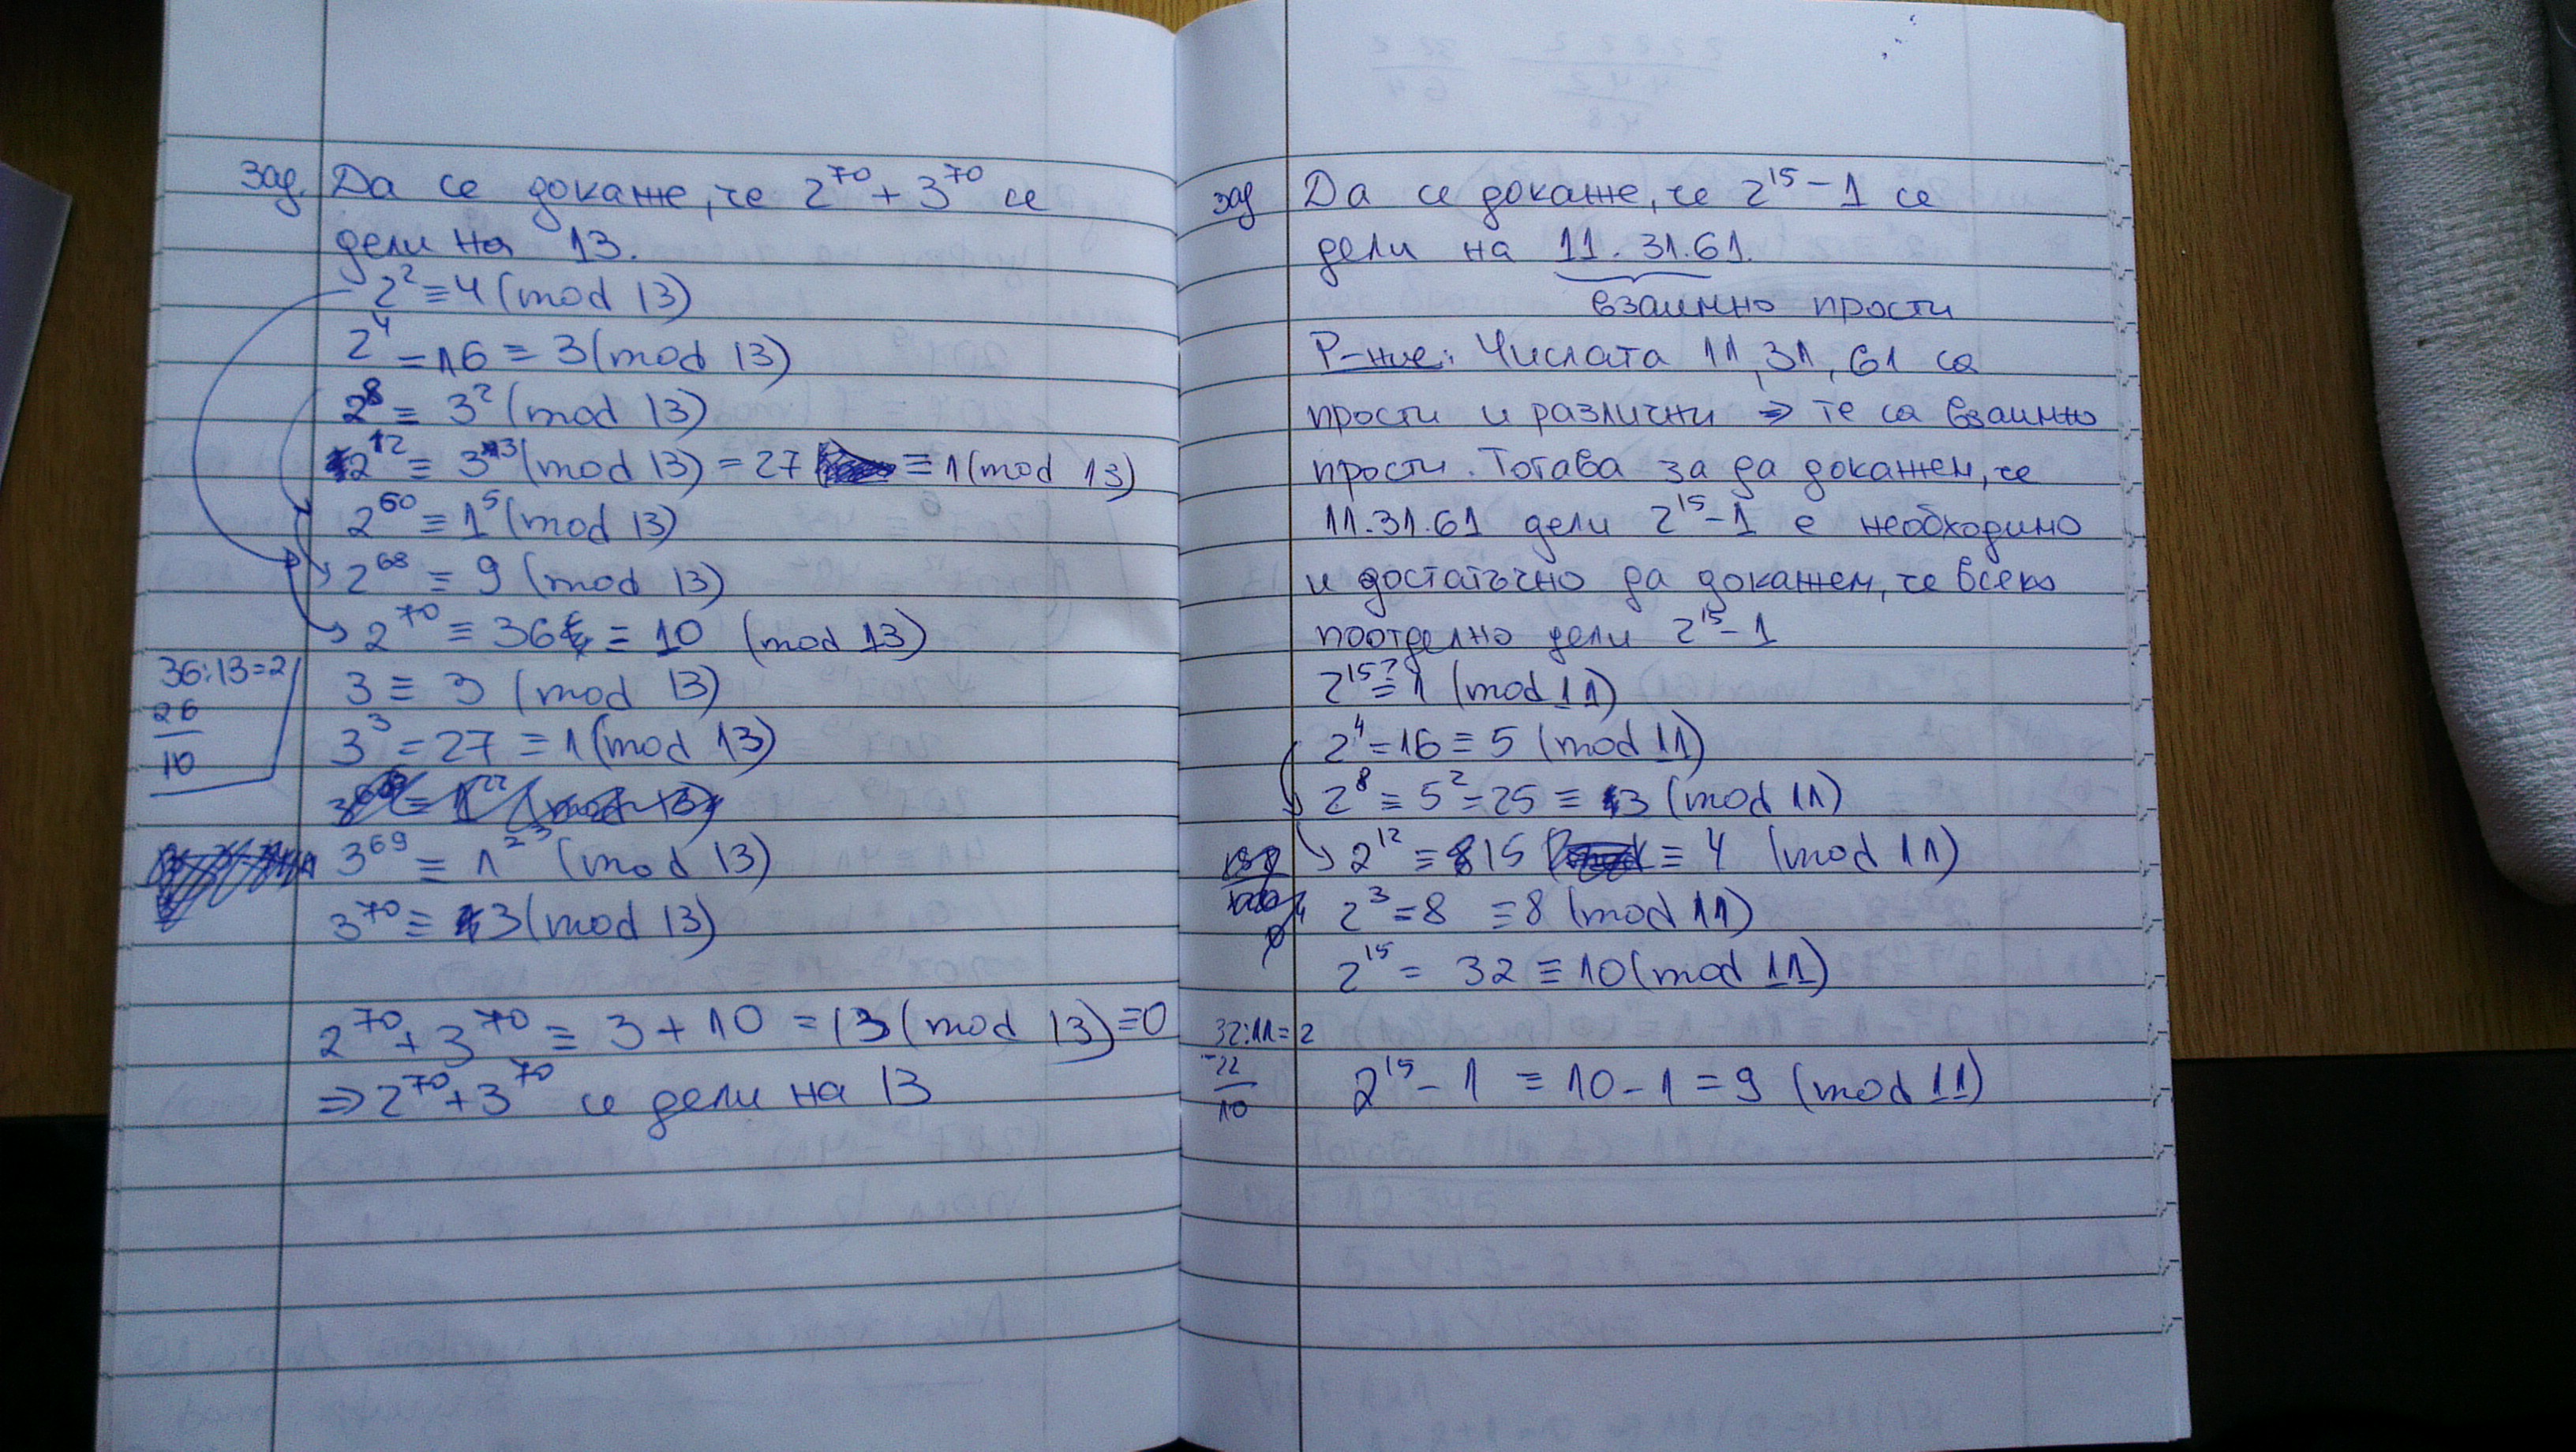 зад. Да се докаже, че 2^70 + 3^70 се
дели на 13.
2^2 ≡ 4 (mod 13)
2^4 = 16 ≡ 3 (mod 13)
2^8 ≡ 3^2 (mod 13)
2^12 ≡ 3^3 (mod 13) = 27 ≡ 1 (mod 13)
2^60 ≡ 1^5 (mod 13)
2^68 ≡ 9 (mod 13)
2^70 ≡ 36 ≡ 10 (mod 13)
36:13=2
26
10
3 ≡ 3 (mod 13)
3^3 = 27 ≡ 1 (mod 13)
3^69 ≡ 1^23 (mod 13)
3^70 ≡ 3 (mod 13)
2^70 + 3^70 ≡ 3 + 10 = 13 (mod 13) ≡ 0
⇒ 2^70 + 3^70 се дели на 13
зад Да се докаже, че 2^15 - 1 се
дели на 11.31.61.
взаимно прости
Р-ние: Числата 11, 31, 61 са
прости и различни ⇒ те са взаимно
прости. Тогава за да докажем, че
11.31.61 дели 2^15 - 1 е необходимо
и достатъчно да докажем, че всеки
поотделно дели 2^15 - 1
2^15 ≟ 1 (mod 11)
2^4 = 16 ≡ 5 (mod 11)
2^8 ≡ 5^2 = 25 ≡ 3 (mod 11)
2^12 ≡ 15 ≡ 4 (mod 11)
2^3 = 8 ≡ 8 (mod 11)
2^15 = 32 ≡ 10 (mod 11)
32:11=2
-22
10
2^15 - 1 ≡ 10 - 1 = 9 (mod 11)